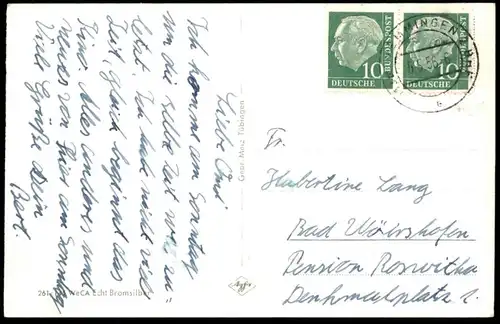 Liebe Omi
Ich komme am Sonntag
um die selbe Zeit wie zu-
letzt. Ich habe nicht viel
Zeit, gleich beginnt das
Kino. Alles andere und
neues von hier am Sonntag
Viele Grüße Dein
Bert.
Gebr. Metz Tübingen
261 WeCA Echt Bromsilber
Agfa
10 DEUTSCHE BUNDESPOST
10 DEUTSCHE
Fr.
Hubertine Lang
Bad Wörishofen
Pension Roswitha
Denkmalplatz 1